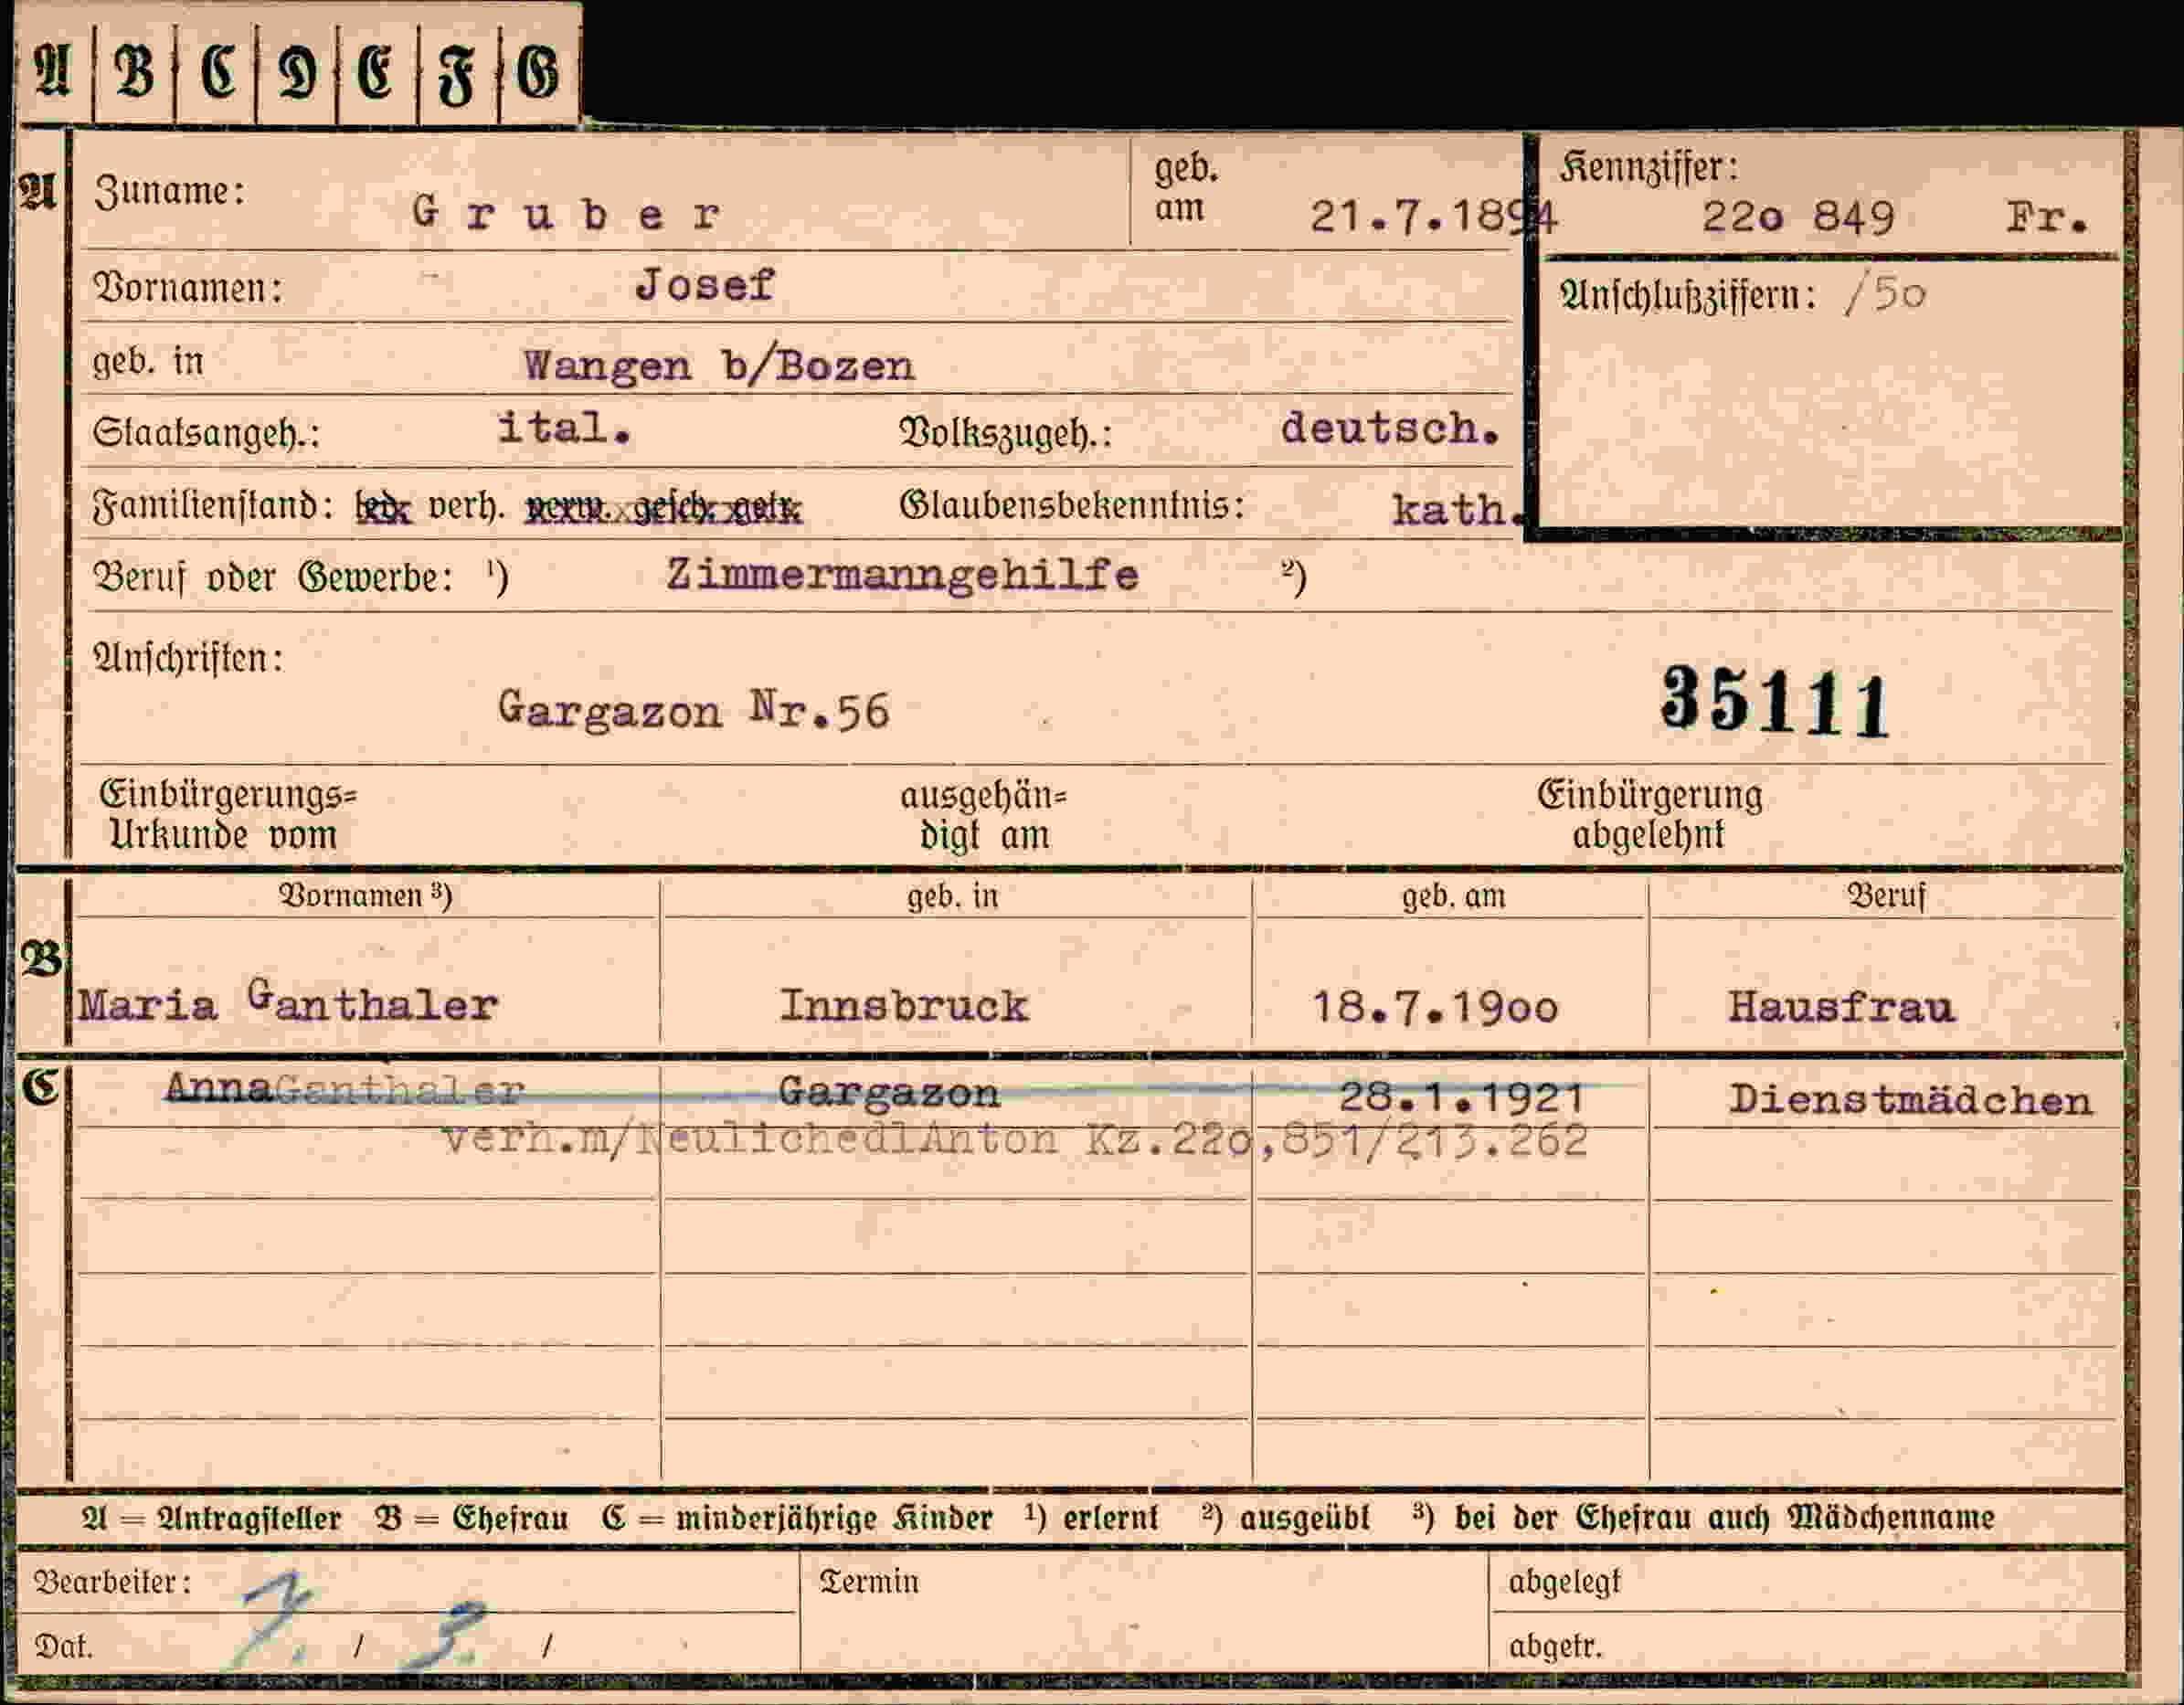 A B C D E F G
A Zuname: Gruber geb. am 21.7.1894 Kennziffer: 22o 849 Fr.
Vornamen: Josef Anschlußziffern: /50
geb. in Wangen b/Bozen
Staatsangeh.: ital. Volkszugeh.: deutsch.
Familienstand: led. verh. verw. gesch. getr. Glaubensbekenntnis: kath.
Beruf oder Gewerbe: ¹) Zimmermanngehilfe ²)
Anschriften:
Gargazon Nr.56 35111
Einbürgerungs= ausgehän= Einbürgerung
Urkunde vom digt am abgelehnt
Vornamen ³) geb. in geb. am Beruf
B
Maria Ganthaler Innsbruck 18.7.19oo Hausfrau
C Anna Ganthaler Gargazon 28.1.1921 Dienstmädchen
verh.m/NeulichedlAnton Kz.22o,851/213.262
A = Antragsteller B = Ehefrau C = minderjährige Kinder ¹) erlernt ²) ausgeübt ³) bei der Ehefrau auch Mädchenname
Bearbeiter: Termin abgelegt
Dat. 7. / 3. / abgetr.